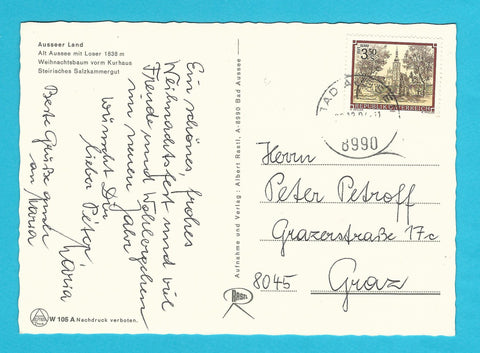 Ausseer Land
Alt Aussee mit Loser 1838 m
Weihnachtsbaum vorm Kurhaus
Steirisches Salzkammergut
Ein schönes, frohes
Weihnachtsfest und viel
Freude und Wohlergehen
im neuen Jahr
wünscht Dir
lieber Peter,
Maria
Beste Grüße
an Maria
W 105 A Nachdruck verboten.
Aufnahme und Verlag: Albert Rastl, A-8990 Bad Aussee
Rastl
3.50
REPUBLIK ÖSTERREICH
BAD
8990
Herrn
Peter Petroff
Grazerstraße 17c
8045 Graz